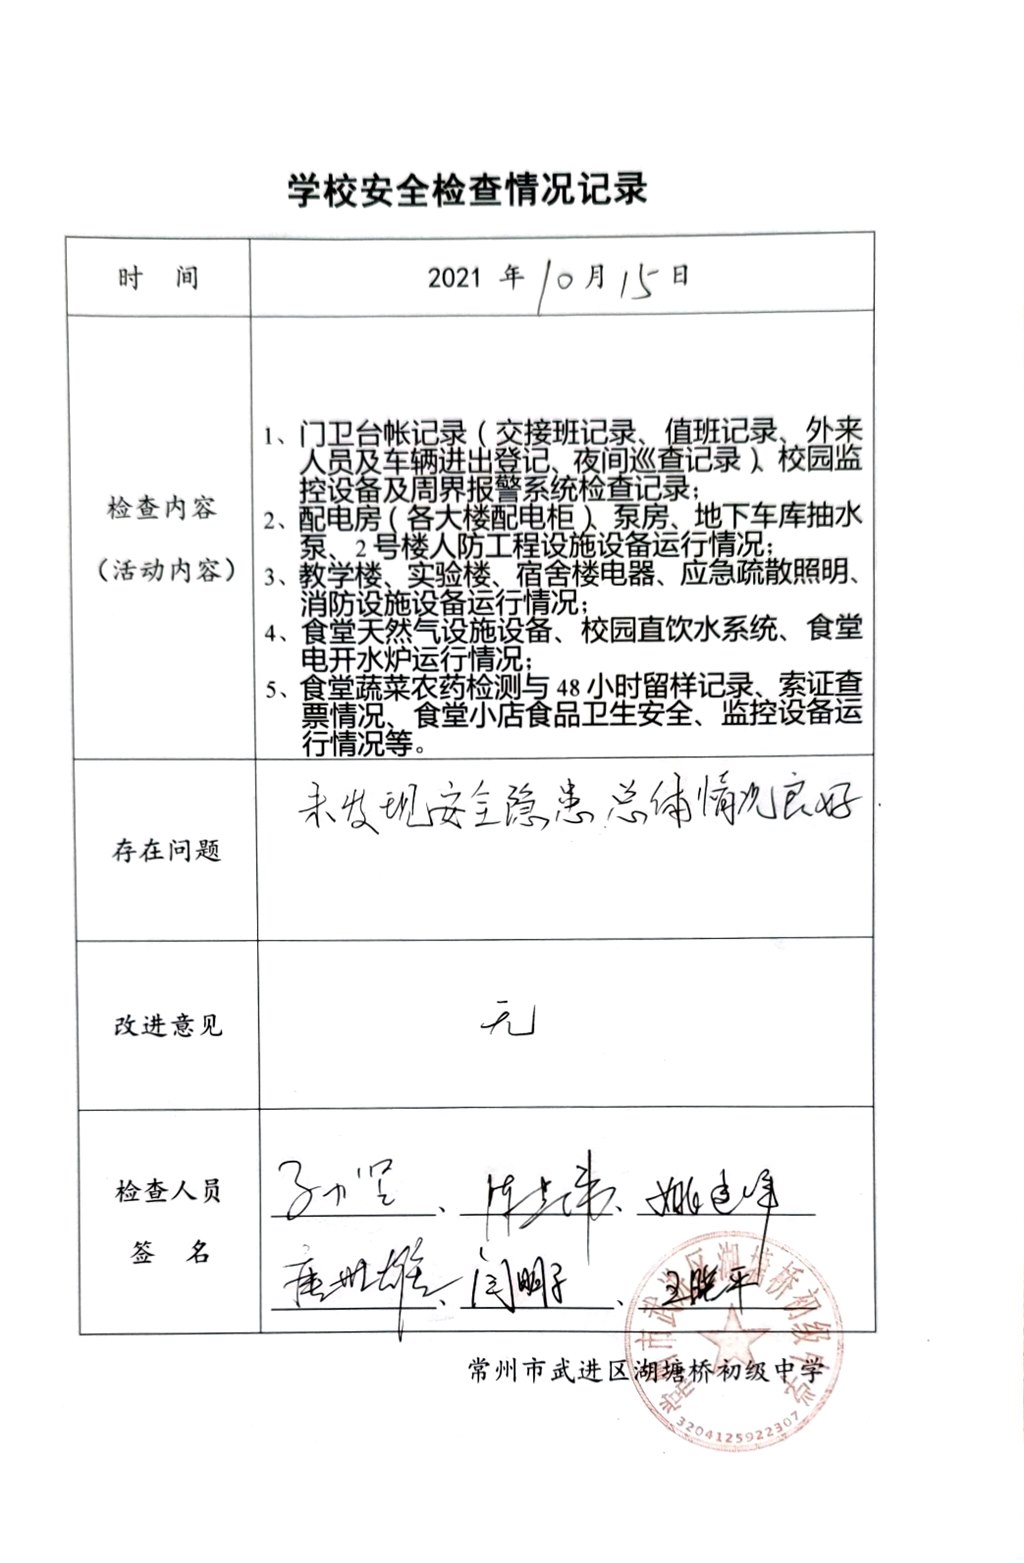 学校安全检查情况记录
时 间
2021 年 10 月 15 日
检查内容
（活动内容）
1、门卫台帐记录（交接班记录、值班记录、外来
人员及车辆进出登记、夜间巡查记录）、校园监
控设备及周界报警系统检查记录；
2、配电房（各大楼配电柜）、泵房、地下车库抽水
泵、2 号楼人防工程设施设备运行情况；
3、教学楼、实验楼、宿舍楼电器、应急疏散照明、
消防设施设备运行情况；
4、食堂天然气设施设备、校园直饮水系统、食堂
电开水炉运行情况；
5、食堂蔬菜农药检测与 48 小时留样记录、索证查
票情况、食堂小店食品卫生安全、监控设备运
行情况等。
存在问题
未发现安全隐患 总体情况良好
改进意见
无
检查人员
签 名
姚建峰
闫明子、王晓平
常州市武进区湖塘桥初级中学
常州市武进区湖塘桥初级中学
3204125922307